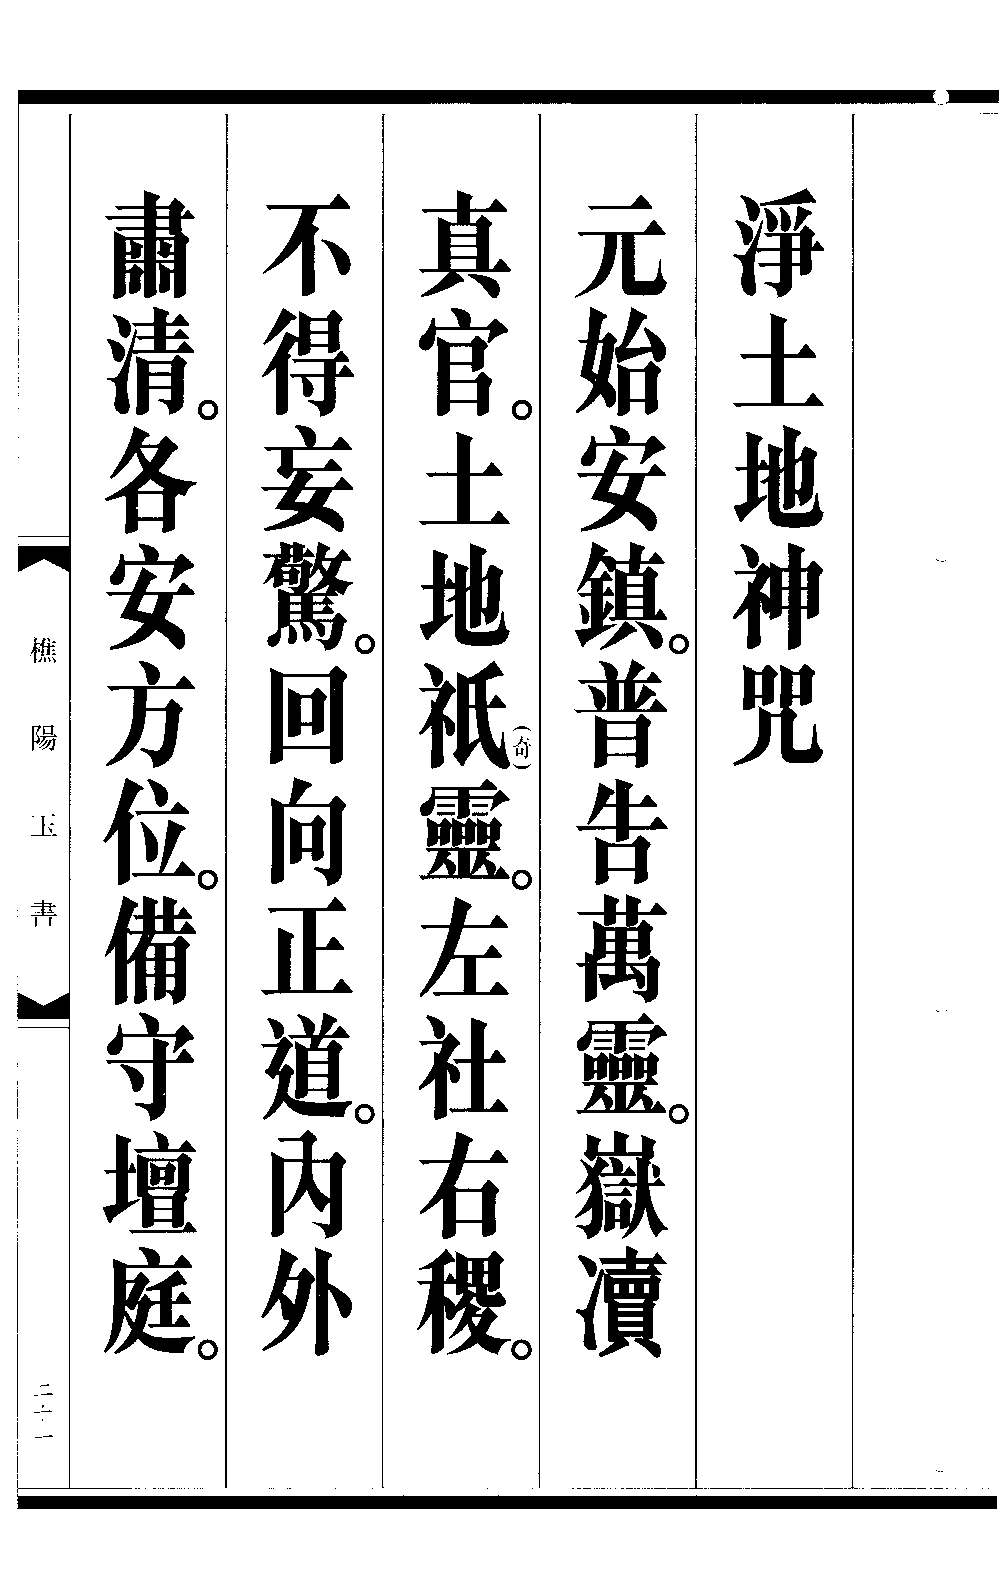 淨土地神咒
元始安鎮。普告萬靈。嶽瀆
真官。土地祇(奇)靈。左社右稷。
不得妄驚。回向正道。內外
肅清。各安方位。備守壇庭。
樵陽玉書
二十一